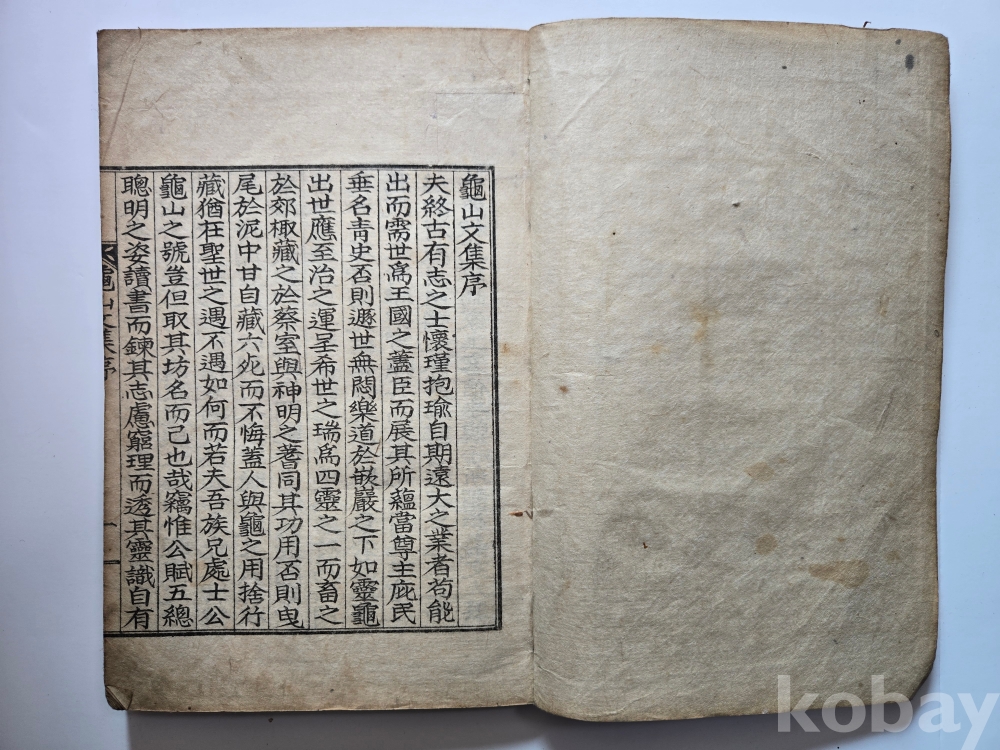 龜山文集序
夫終古有志之士懷瑾抱瑜自期遠大之業者苟能
出而需世爲王國之藎臣而展其所蘊當尊主庇民
垂名靑史否則遯世無悶樂道於嵌巖之下如靈龜
出世應至治之運呈希世之瑞爲四靈之一而畜之
於郊棷藏之於蔡室與神明之蓍同其功用否則曳
尾於泥中甘自藏六死而不悔蓋人與龜之用捨行
藏猶在聖世之遇不遇如何而若夫吾族兄處士公
龜山之號豈但取其坊名而已也哉竊惟公賦五總
聰明之姿讀書而鍊其志慮窮理而透其靈識自有
龜山文集序
一
kobay